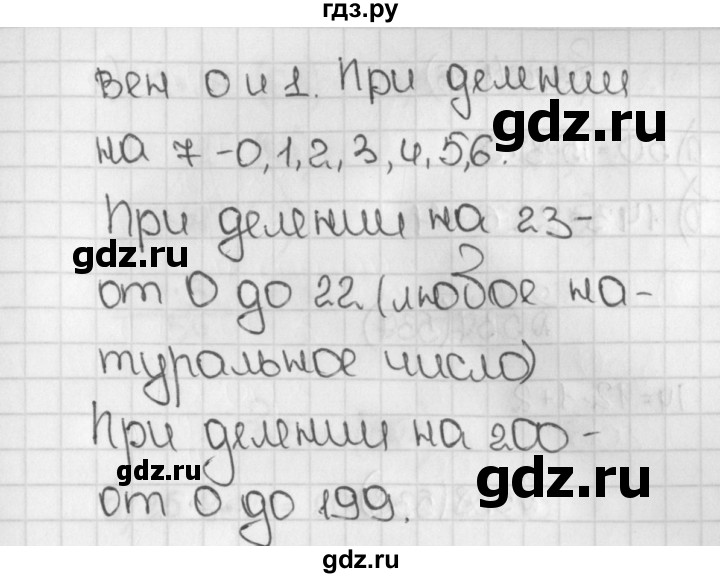 гдз.ру
вен 0 и 1. При делении
gdz.ru
на 7 - 0, 1, 2, 3, 4, 5, 6.
При делении на 23 -
gdz.ru
от 0 до 22 (любое на-
gdz.ru
туральное число)
При делении на 200 -
gdz.ru
gdz.ru
от 0 до 199.
gdz.ru